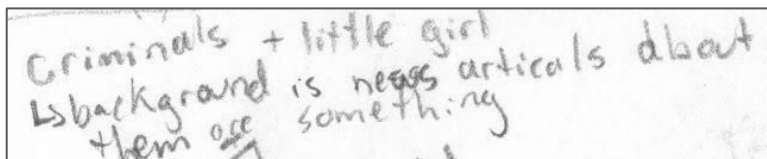 Criminals + little girl
↳ background is news articals about
them ore something